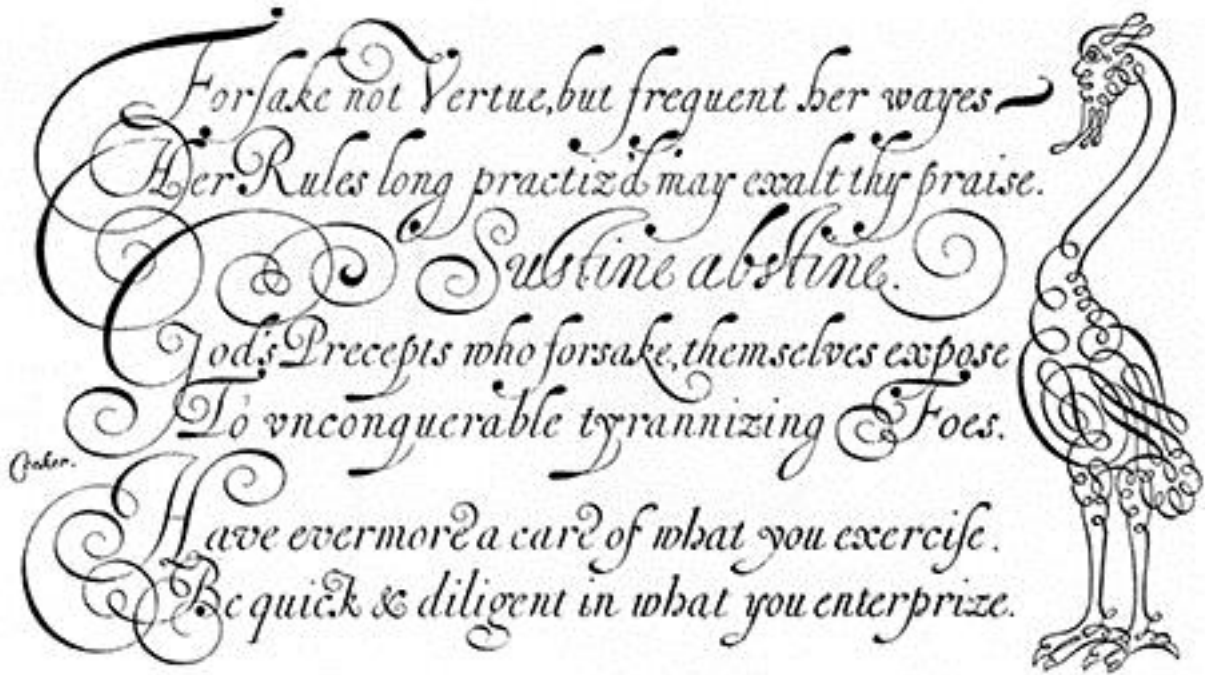 Forſake not Vertue, but frequent her wayes
Her Rules long practiz'd may exalt thy praise.
Sustine abstine.
God's Precepts who forsake, themselves expose
To vnconquerable tyrannizing Foes.
Cocker.
Have evermore a care of what you exerciſe.
Be quick & diligent in what you enterprize.